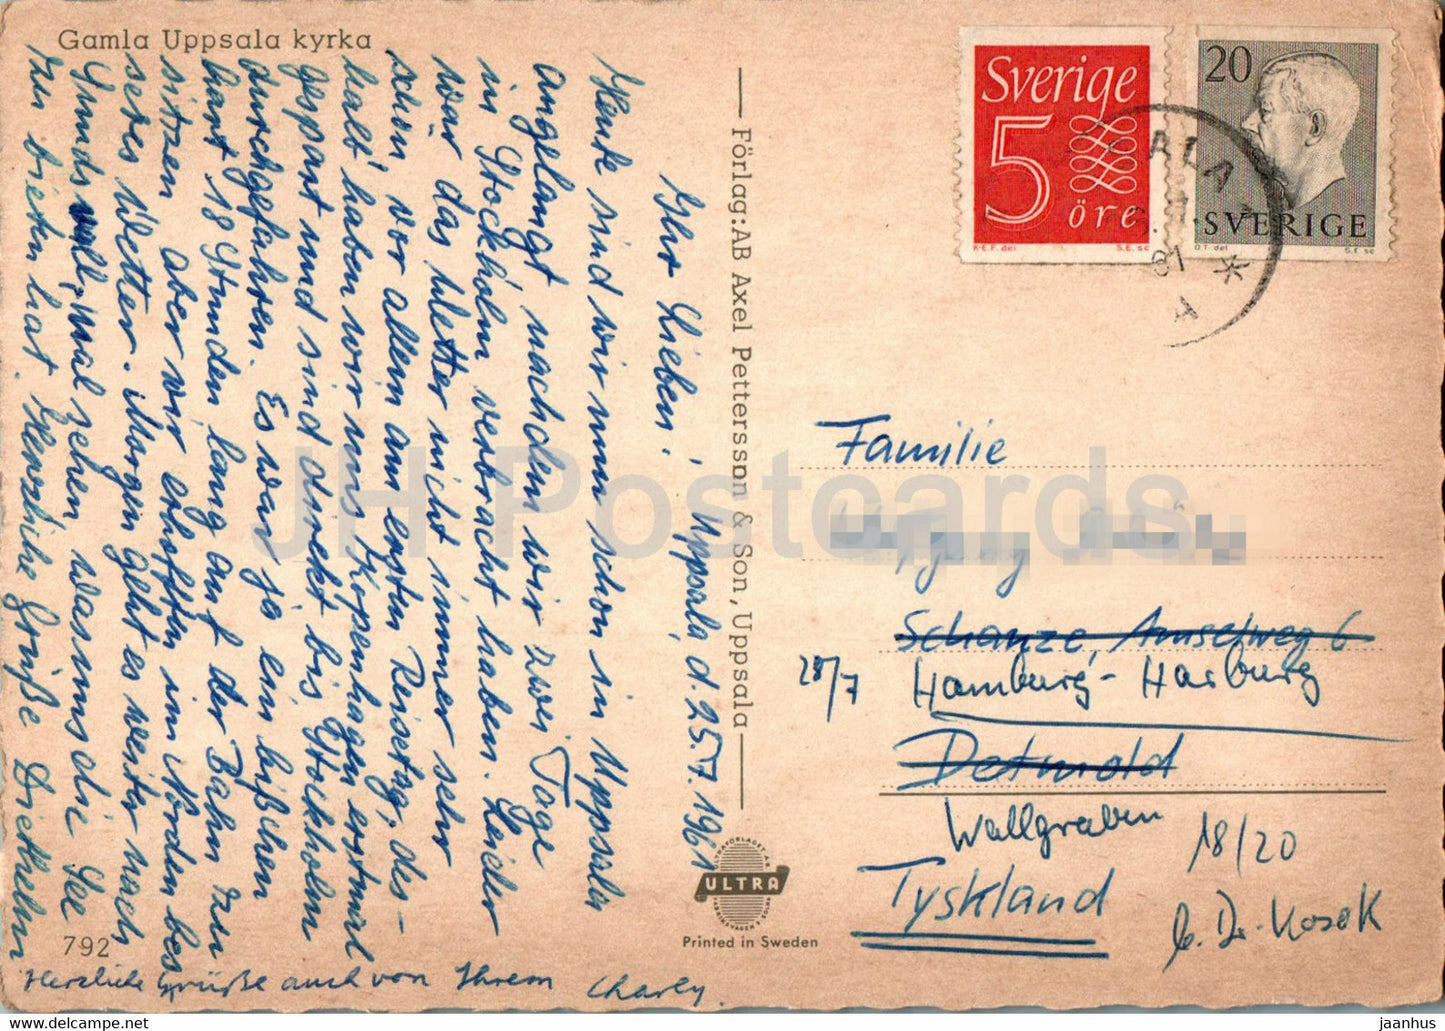 Gamla Uppsala kyrka
Uppsala, d. 25.7.1961
Ihr Lieben!
Heute sind wir nun schon in Uppsala
angelangt nachdem wir zwei Tage
in Stockholm verbracht haben. Leider
war das Wetter nicht immer sehr
schön, vor allem am ersten Reisetag, des-
halb haben wir uns Kopenhagen erstmal
gespart und sind direkt bis Stockholm
durchgefahren. Es war ja ein bißchen
hart 18 Stunden lang auf der Bahn zu
sitzen aber wir erhofften im Norden bes
seres Wetter. Morgen geht es weiter nach
Sunds vall, mal sehen was uns die See
zu bieten hat. Herzliche Grüße Diethelm
Herzliche Grüße auch von Ihrem Charly.
792
Förlag: AB Axel Pettersson & Son, Uppsala
ULTRA
Printed in Sweden
Sverige
5
öre
K-E.F. del
S.E. sc
20
SVERIGE
O T. del
S.E. sc
ALA
61
A
Familie
Schanze, Amselweg 6
28/7
Hamburg-Harburg
Detmold
Wallgraben
18/20
Tyskland
b. Dr. Kosok
JH Postcards